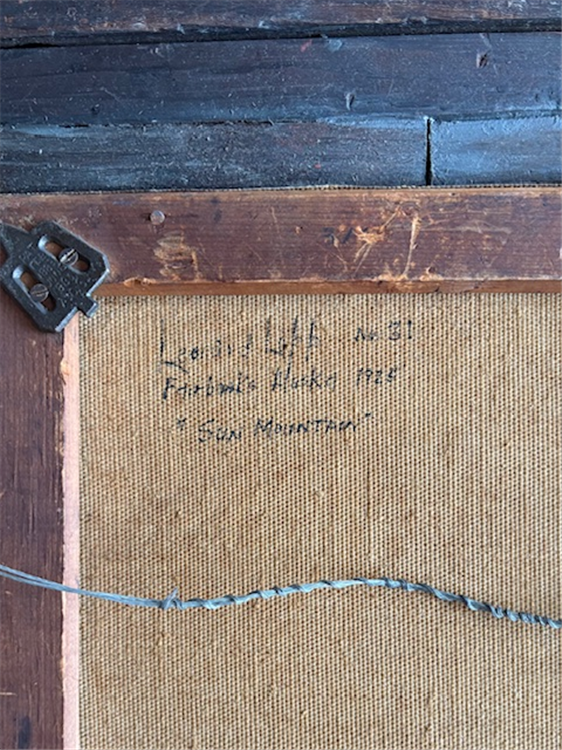 Leonard Leff No 31
Fairbanks Alaska 1925
"SUN MOUNTAIN"